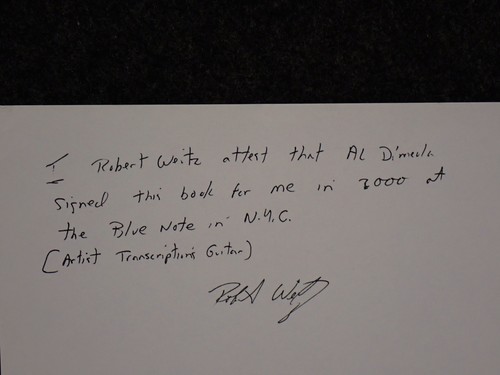 I Robert Weitz attest that AL Di'meola
signed this book for me in 2000 at
the Blue Note in N.Y.C.
(Artist Transcriptions Guitar)